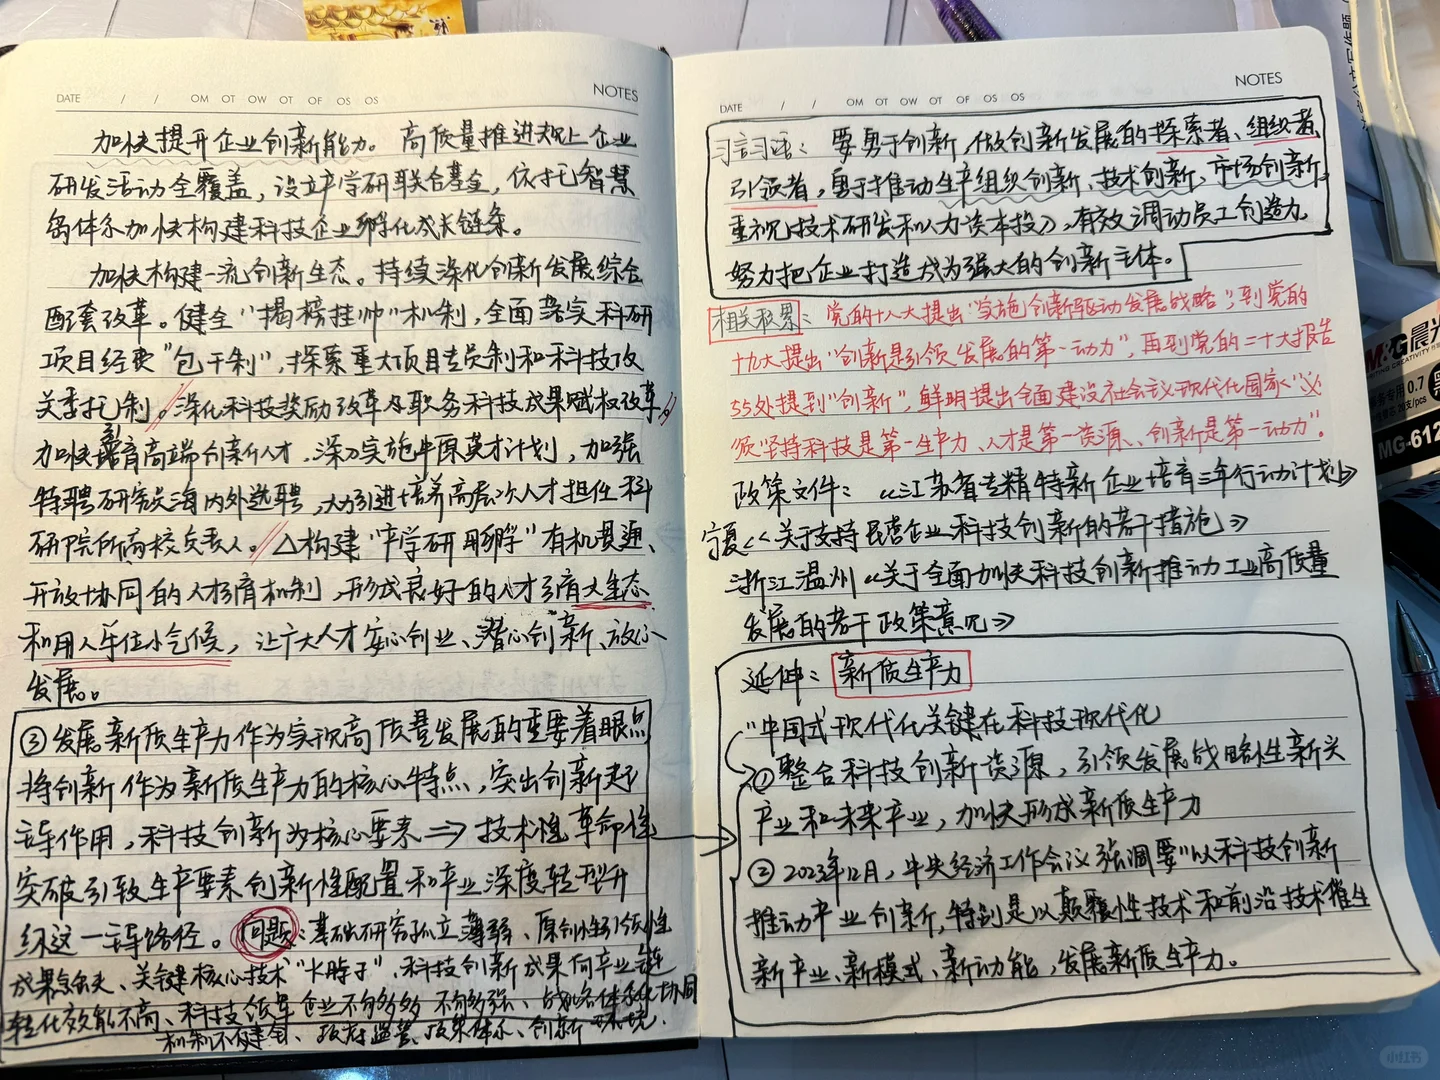 DATE / / OM OT OW OT OF OS OS NOTES
加快提升企业创新能力。高质量推进规上企业
研发活动全覆盖，设立产学研联合基金，依托智慧
岛体系加快构建科技企业孵化成长链条。
加快构建一流创新生态。持续深化创新发展综合
配套改革。健全“揭榜挂帅”机制，全面落实科研
项目经费“包干制”，探索重大项目专员制和科技攻
关委托制。深化科技奖励改革及职务科技成果赋权改革。
加快引育高端创新人才，深入实施中原英才计划，加强
特聘研究员海内外选聘，大力引进培养高层次人才担任科
研院所高校负责人。△构建“产学研用孵”有机贯通、
开放协同的人才引育机制，形成良好的人才引育大生态
和用人单位小气候，让广大人才安心创业、潜心创新、放心
发展。
③发展新质生产力作为实现高质量发展的重要着眼点
将创新作为新质生产力的核心特点，突出创新的
主导作用，科技创新为核心要素⇒技术性革命性
突破引致生产要素创新性配置和产业深度转型升
级这一主导路径。问题：基础研究孤立薄弱、原创性引领性
成果缺失、关键核心技术“卡脖子”，科技创新成果向产业链
转化效能不高、科技领军企业不够多 不够强、战略各体系化协同
机制不健全、政府运营、政策体系、创新环境.
DATE / / OM OT OW OT OF OS OS NOTES
习言习语：要勇于创新，做创新发展的探索者、组织者、
引领者，勇于推动生产组织创新、技术创新、市场创新，
重视技术研发和人力资本投入，有效调动员工创造力，
努力把企业打造成为强大的创新主体。
相关积累：党的十八大提出“实施创新驱动发展战略”，到党的
十九大提出“创新是引领发展的第一动力”，再到党的二十大报告
55处提到“创新”，鲜明提出全面建设社会主义现代化国家“必
须坚持科技是第一生产力、人才是第一资源、创新是第一动力”。
政策文件：《江苏省专精特新企业培育三年行动计划》
宁夏《关于支持民营企业科技创新的若干措施》
浙江温州《关于全面加快科技创新推动工业高质量
发展的若干政策意见》
延伸：新质生产力
“中国式现代化关键在科技现代化
①整合科技创新资源，引领发展战略性新兴
产业和未来产业，加快形成新质生产力
②2023年12月，中央经济工作会议强调要“以科技创新
推动产业创新，特别是以颠覆性技术和前沿技术催生
新产业、新模式、新动能，发展新质生产力。
M&G晨光
0.7
20支/pcs
MG-612
小红书